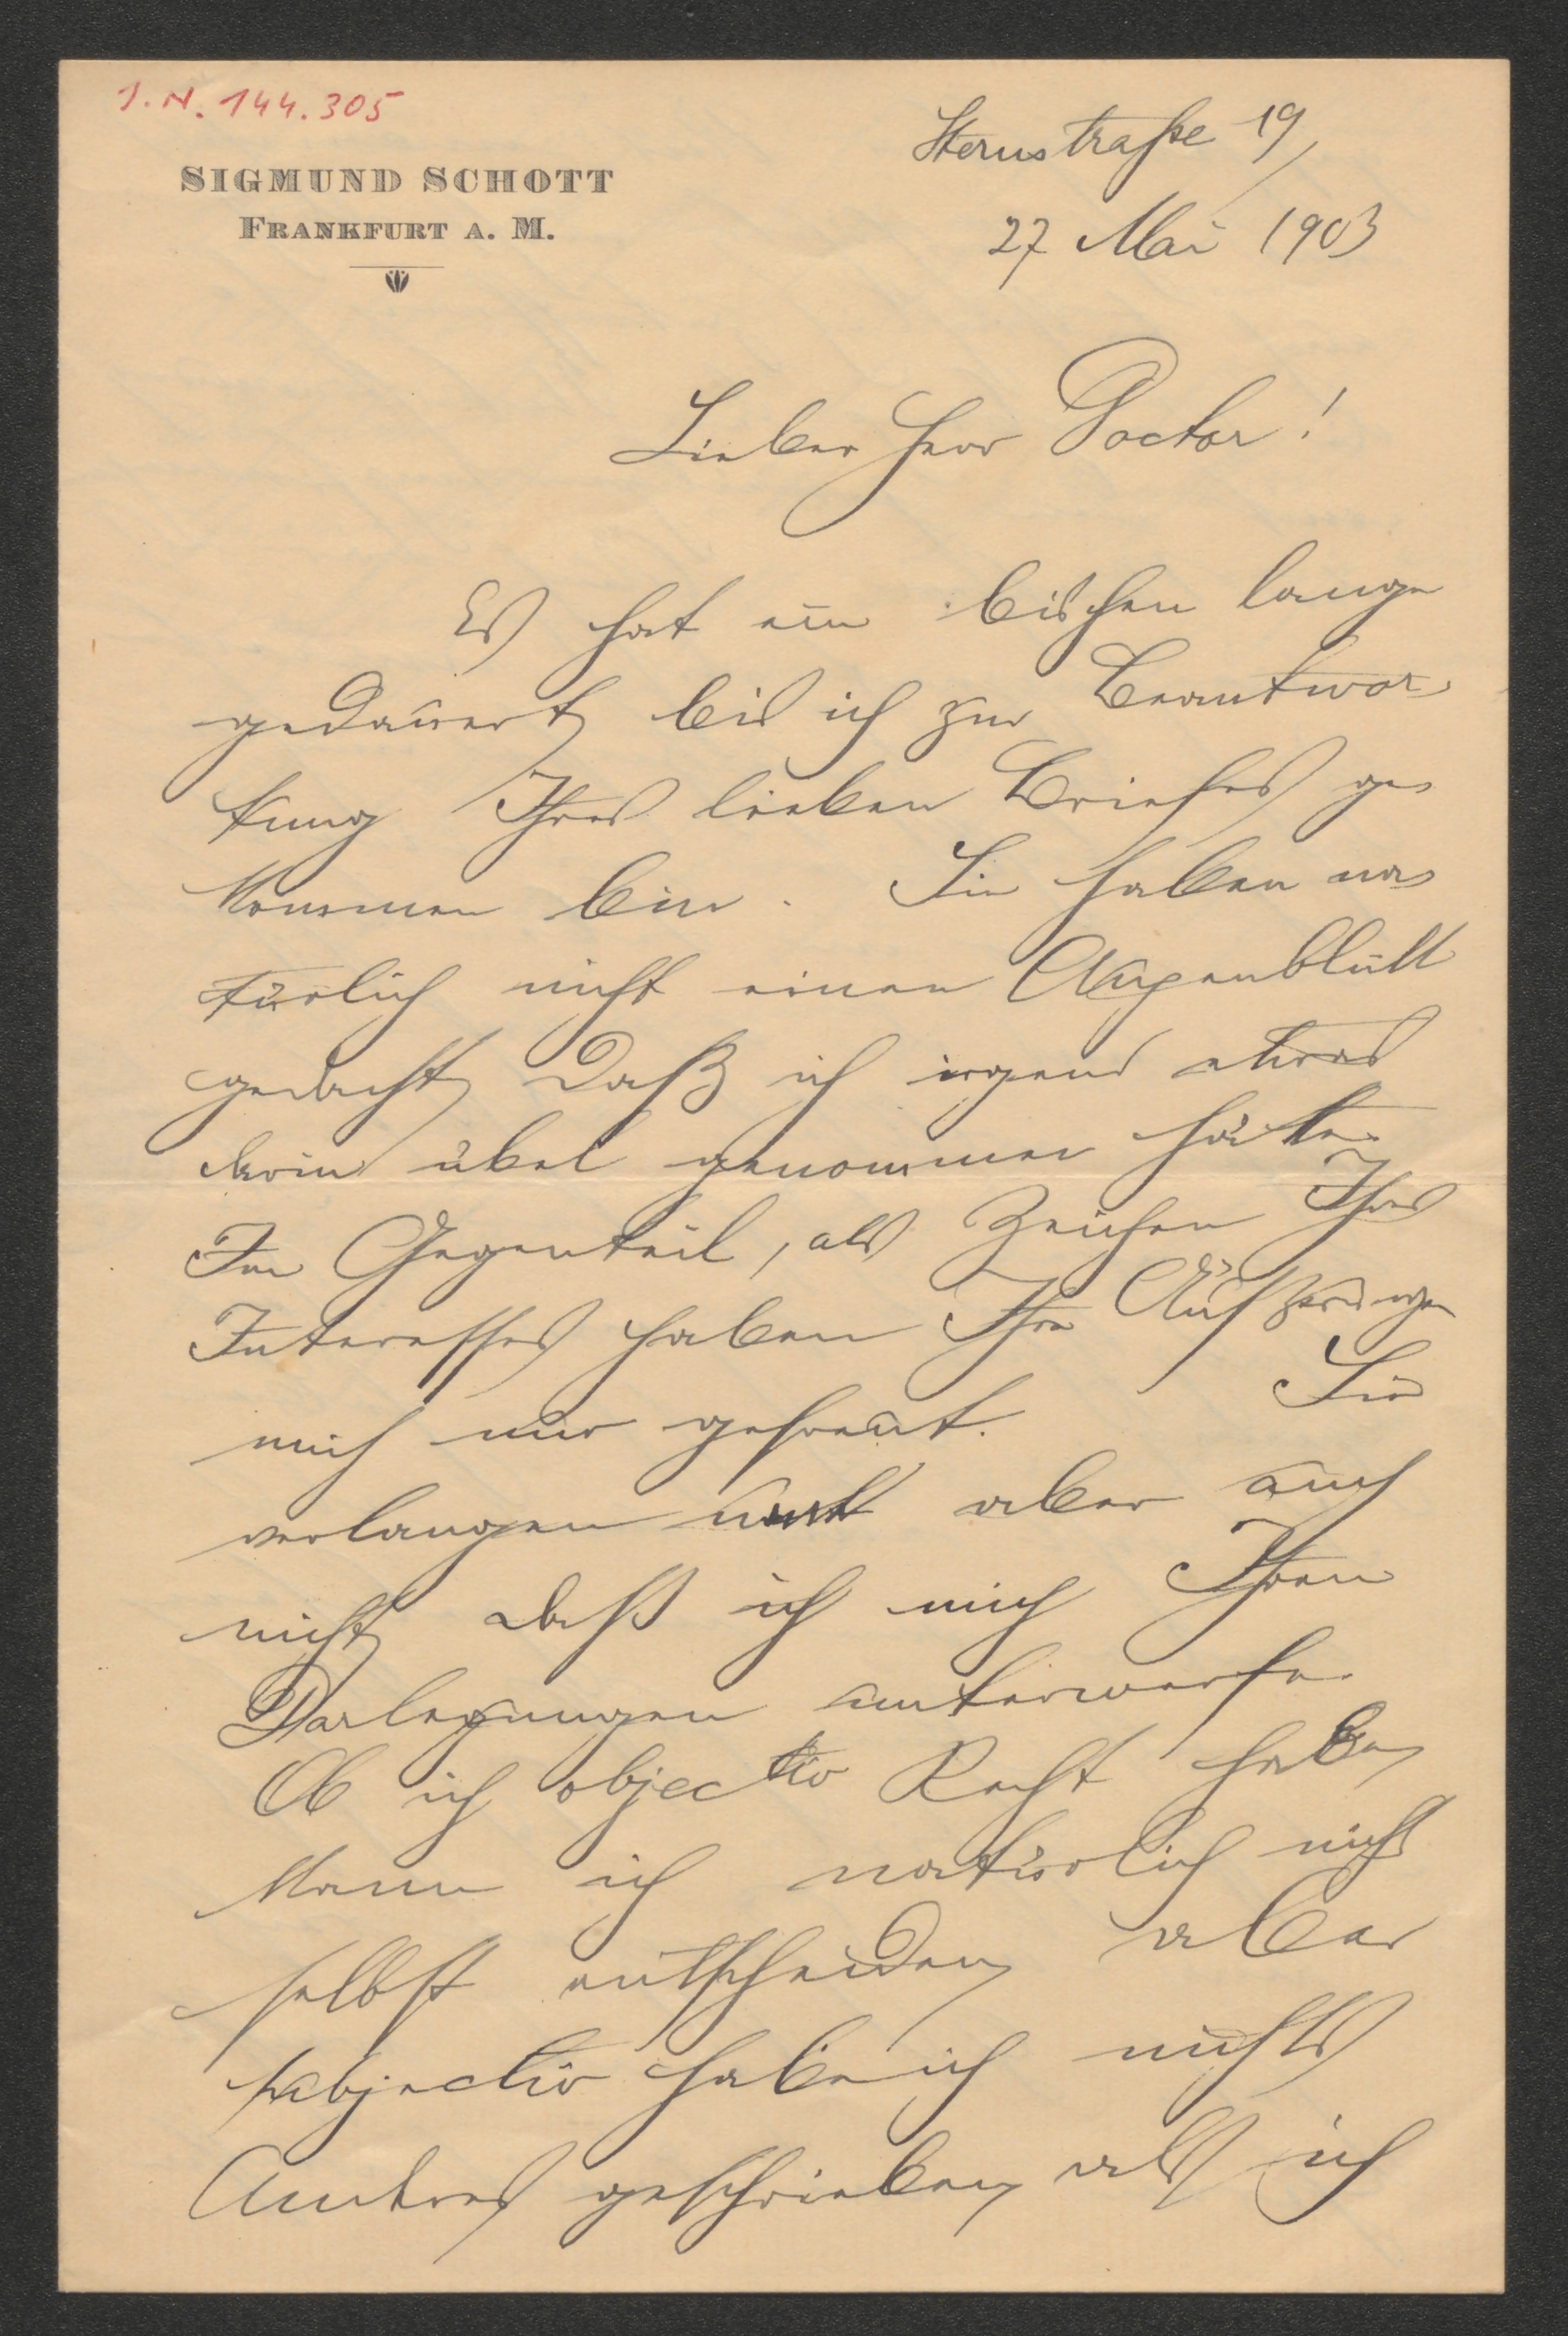 I.N. 144.305
SIGMUND SCHOTT
FRANKFURT A. M.
Sternstraße 19
27 Mai 1903
Lieber Herr Doctor!
Es hat ein bischen lange
gedauert bis ich zur Beantwor
tung Ihres lieben Briefes ge
kommen bin. Sie haben na
türlich nicht einen Augenblick
gedacht daß ich irgend etwas
darin übel genommen hätte.
Im Gegenteil, als Zeichen Ihres
Interesses haben Ihre Äußerungen
mich nur gefreut. Sie
verlangen aber auch
nicht daß ich mich Ihren
Darlegungen unterwerfe.
Ob ich objectiv Recht habe,
kann ich natürlich nicht
selbst entscheiden, aber
subjectiv habe ich nichts
Andres geschrieben, als ich